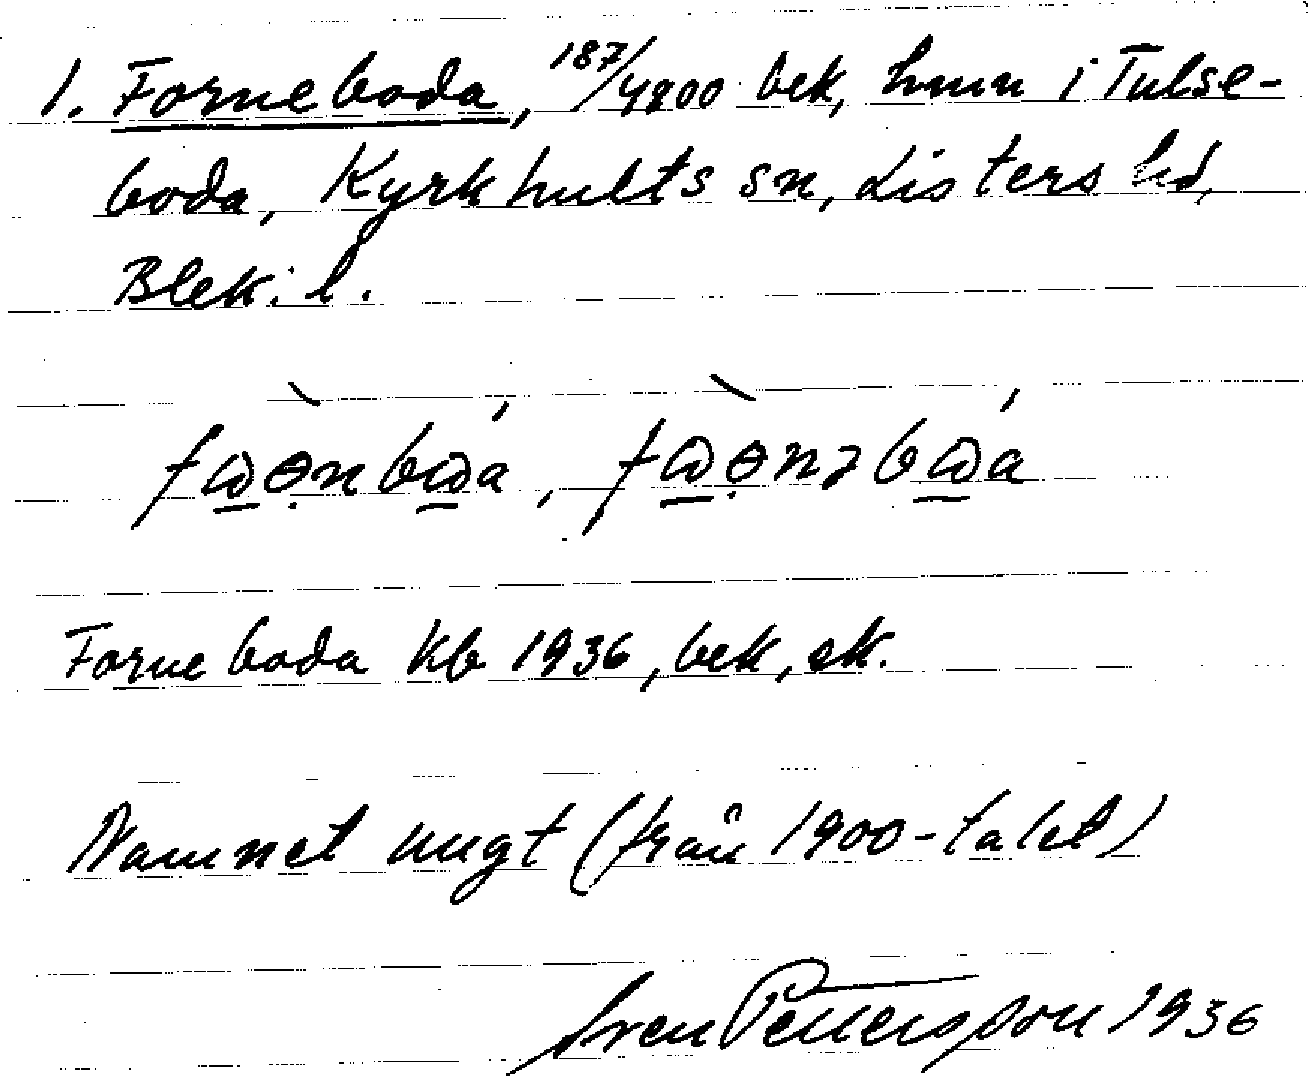 1. Forneboda, 187/4800 bek, hmn i Tulse-
boda, Kyrkhults sn, Listers hd,
Blek. l.
Forneboda Kb 1936, bek, ek.
Namnet ungt (från 1900-talet)
Sven Pettersson 1936